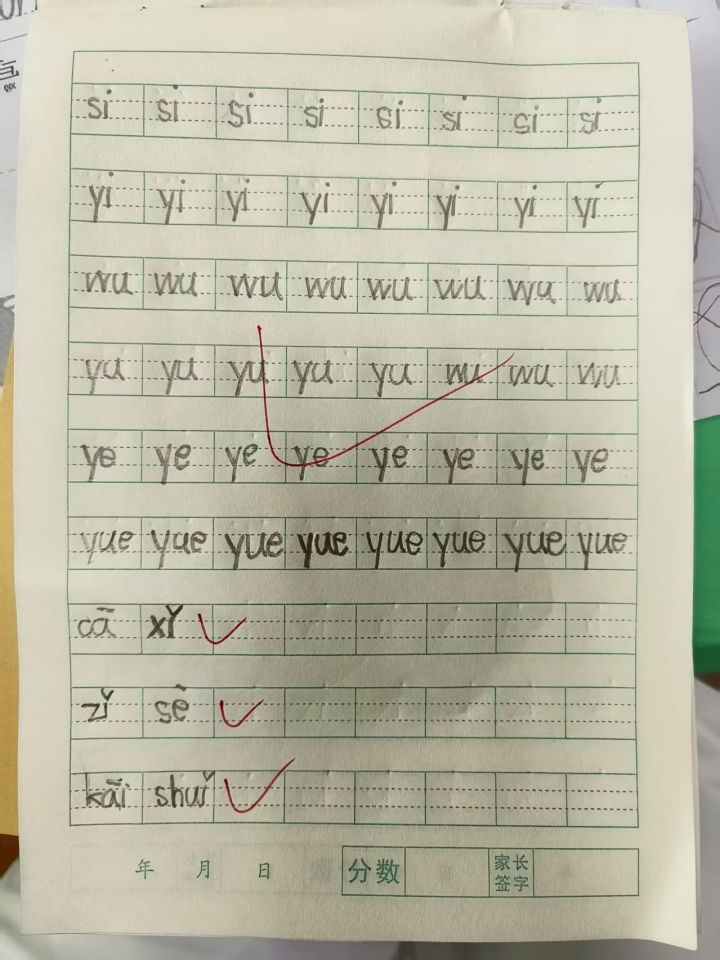 si si si si si si si si
yi yi yi yi yi yi yi yi
wu wu wu wu wu wu wu wu
yu yu yu yu yu wu wu wu
ye ye ye ye ye ye ye ye
yue yue yue yue yue yue yue yue
cā xǐ
zǐ sè
kāi shuǐ
年 月 日 分数 家长签字